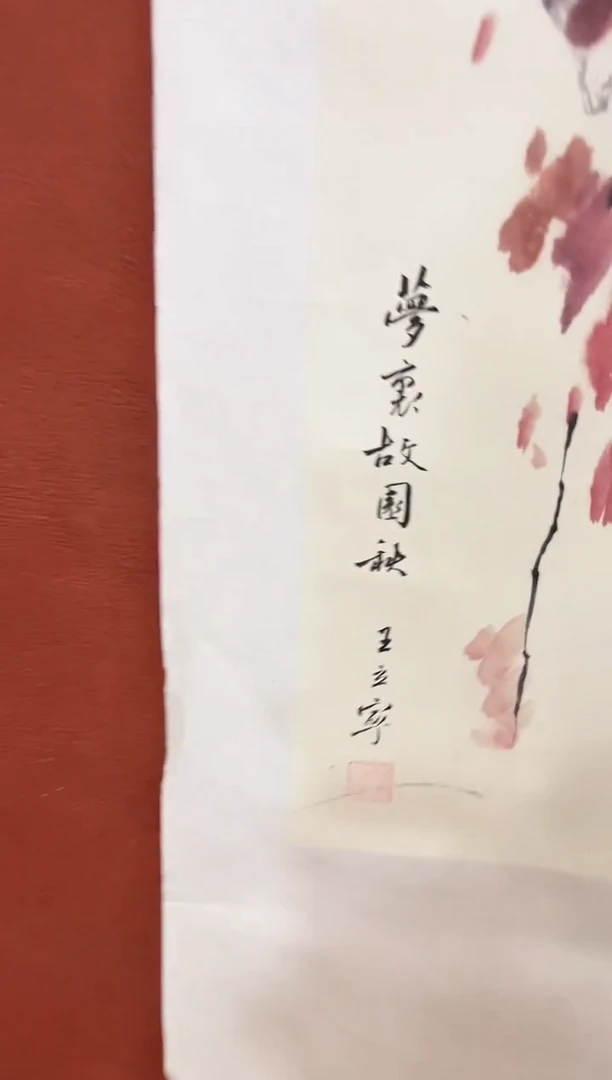 夢裏故園秋
王立寧